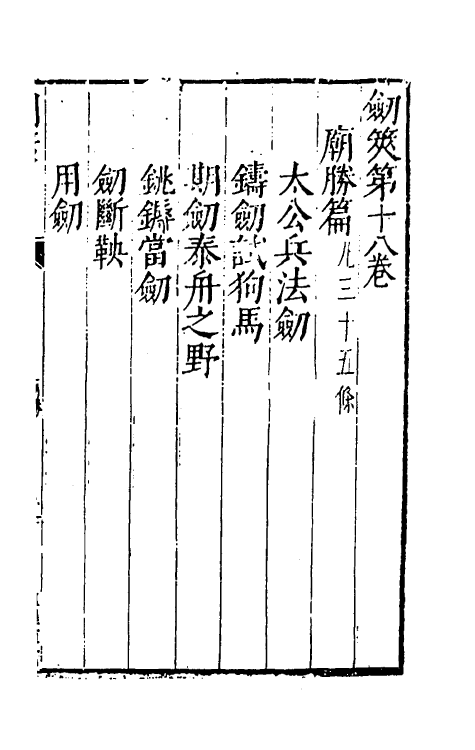 劒筴第十八卷
廟勝篇 凡三十五條
太公兵法劒
鑄劒試狗馬
期劒泰舟之野
銚鎒當劒
劒斷鞅
用劒